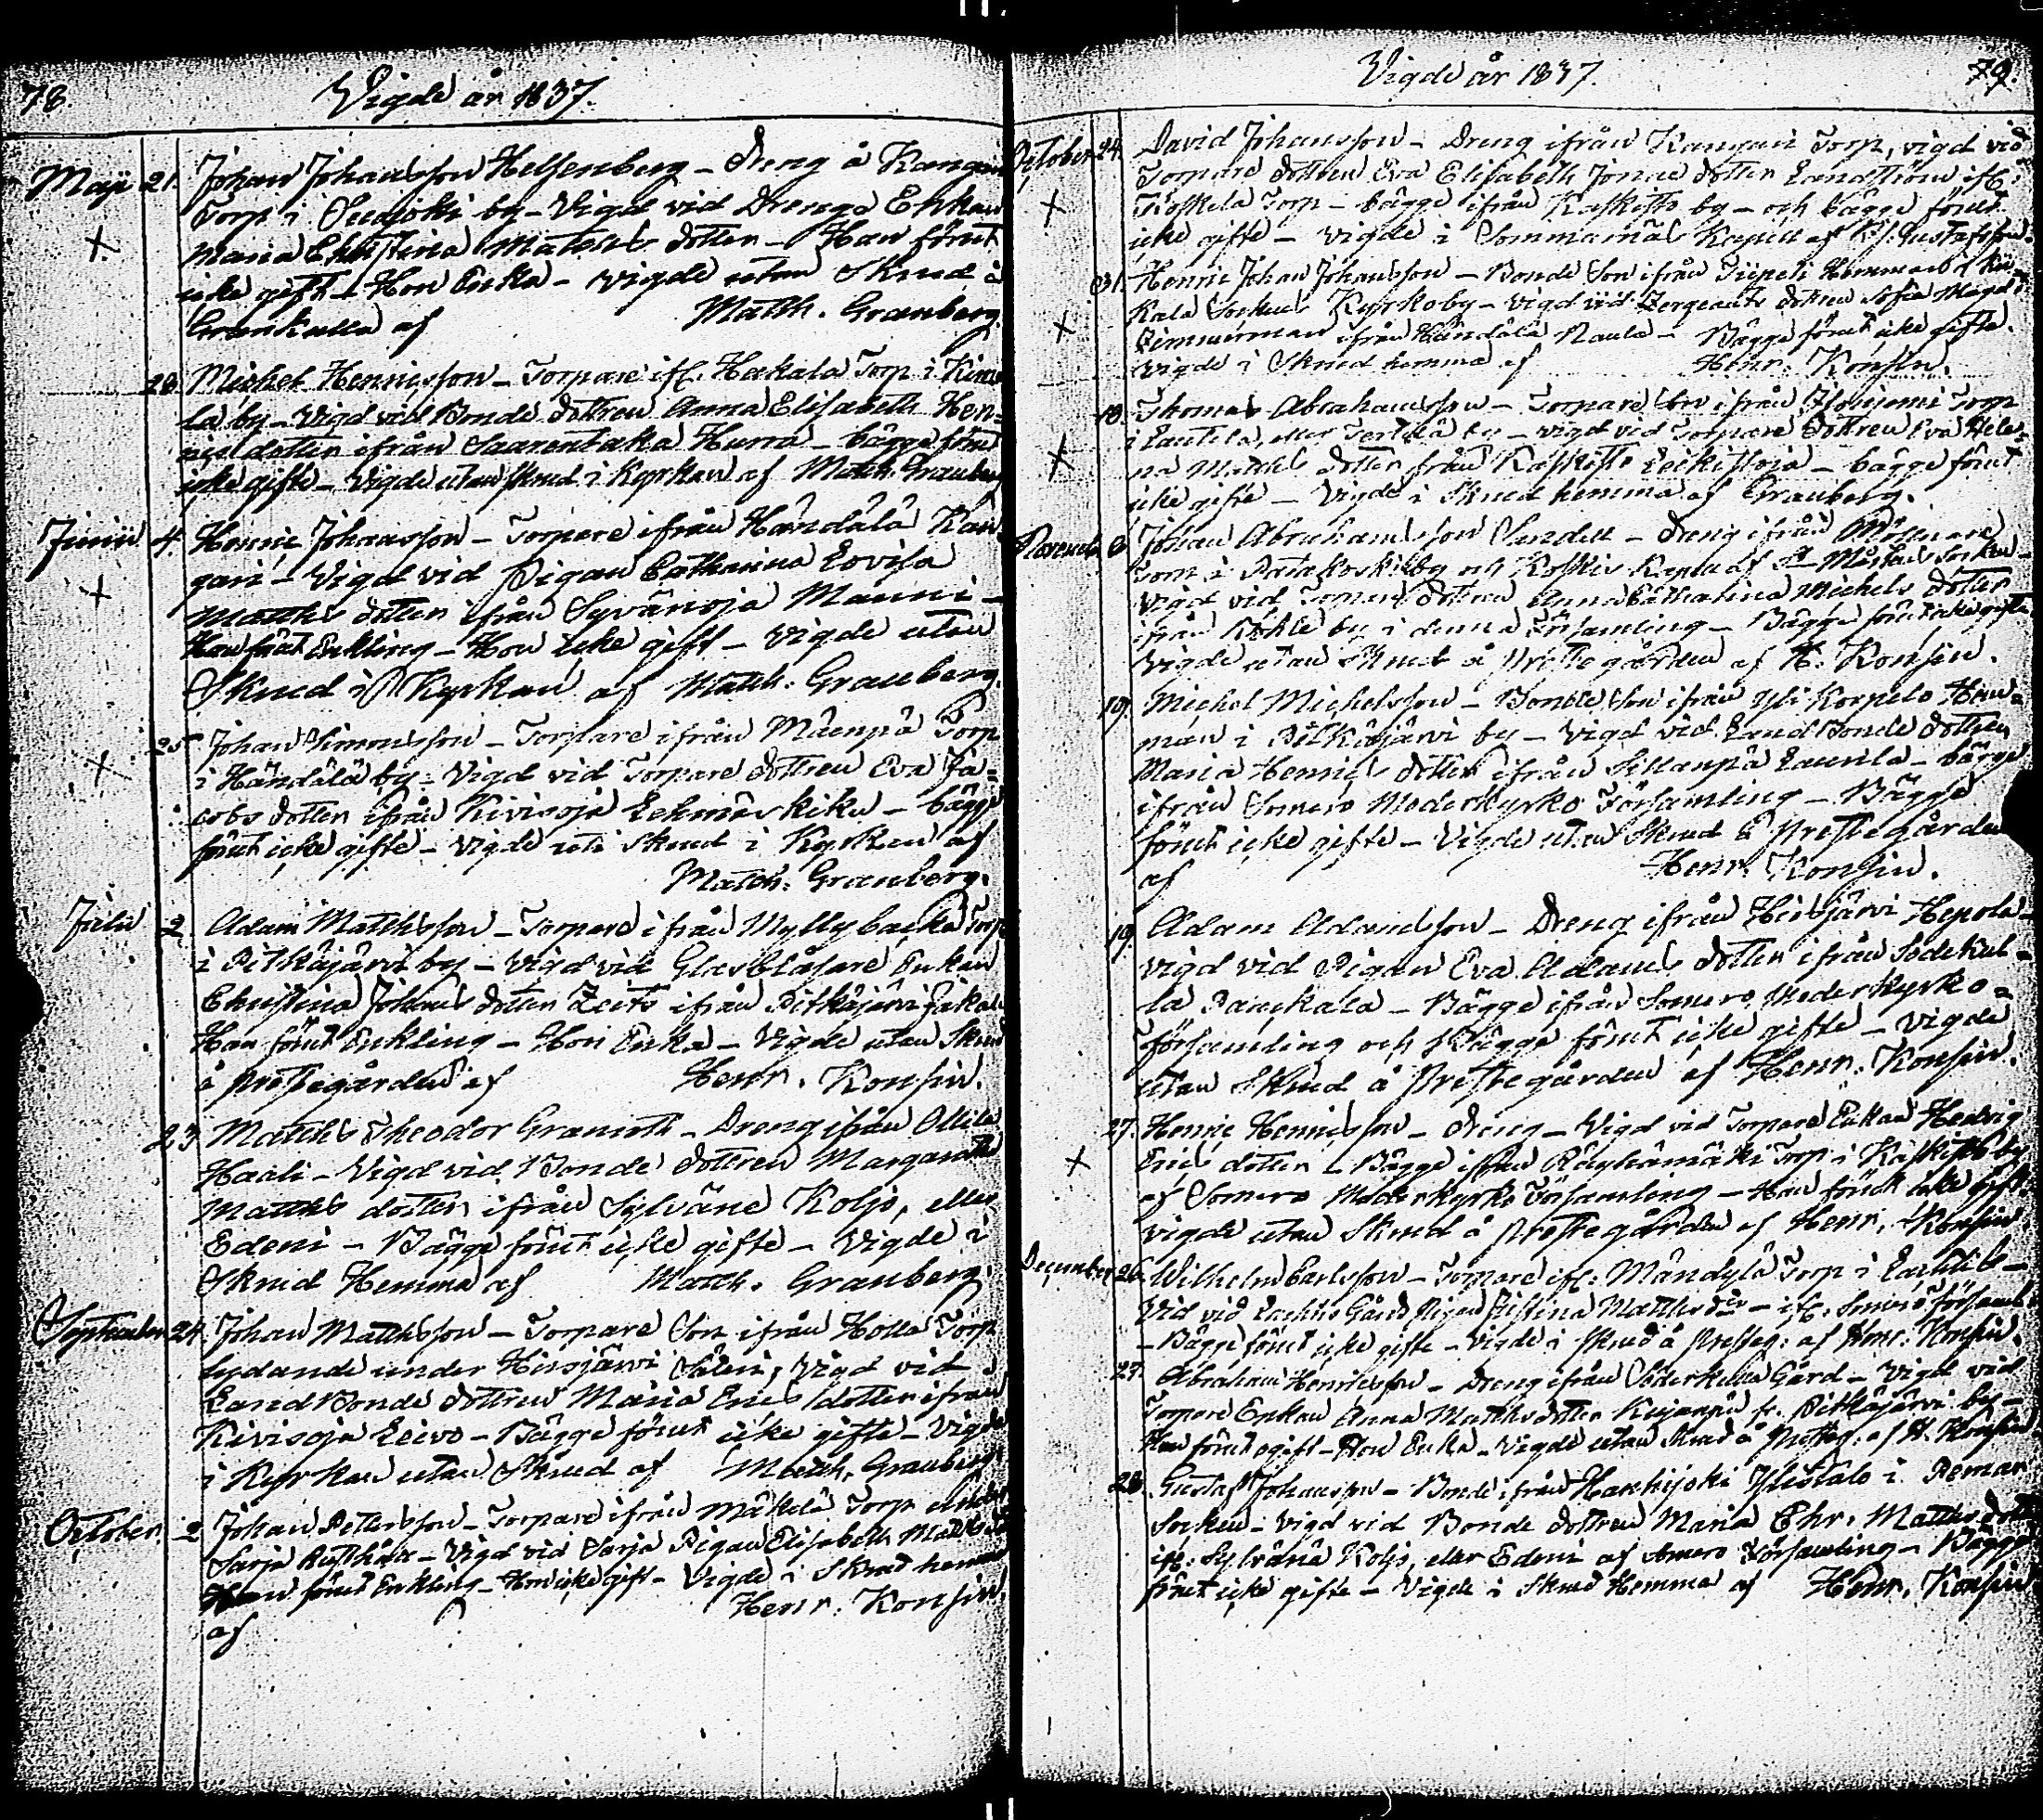 78. Vigde år 1837.
Maji 21. Johan Johansson Helsenberg - Dreng å Kangari
Torp i Suojoki by - Vigd vid Drengs Enkan
Maria Christina Matths dotter - Han förut
icke gift - Hon Enka - Vigde utan Skrud å
Grankulla af Matth. Granberg.
28. Michel Henricsson - Torpare ifr. Hakala Torp i
la by - Vigd vid Bonde dottren Anna Elisabeth Hen=
rics dotter ifrån Saarentaka Hurra - bägge förut
icke gifte - Vigde utan skrud i Kyrkan af Matth. Granberg
Junii 4. Henric Johansson - Torpare ifrån Händälä Kan=
gari - Vigd vid Pigan Catharina Lovisa
Matths dotter ifrån Syvänoja Manni -
Han förut Enkling - Hon icke gift - Vigde utan
Skrud i Kyrkan af Matth. Granberg.
25. Johan Simonsson - Torpare ifrån Mäenpä Torp
i Händälä by - Vigd vid Torpare dottren Eva Ja=
cobs dotter ifrån Kivisoja - bägge
förut icke gifte - Vigde uti skrud i Kyrkan af
Matth. Granberg.
Julii 2. Adam Matthsson - Torpare ifrån Myllybacka Torp
i Pitkäjärvi by - Vigd vid Glasblåsare Enkan
Christina Johans dotter Zeits ifrån Pitkäjärvi
Han förut Enkling - Hon Enka - Vigde utan Skrud
å prestegården af Henr. Konsin.
23. Matths Theodor Granroth - Dreng ifrån Ollila
Haali - Vigd vid Bonde dottren Margaretha
Matths dotter ifrån Sylväne Koljo, eller
Edeni - Bägge förut icke gifte - Vigde i
Skrud Hemma af Matth. Granberg.
September 24. Johan Matthsson - Torpare Son ifrån Holla Torp
lydande under Hirsjärvi Säteri, Vigd vid
Land Bonde dottren Maria Erics dotter ifrån
Kivisoja Leivo - Bägge förut icke gifte - Vigde
i Kyrkan utan Skrud af Matth. Granberg.
October. 2. Johan Pettersson - Torpare ifrån Mäkelä Torp under
Sarja Rusthåll - Vigd vid Sarja Pigan Elisabeth Matths dr
Han förut Enkling - Hon icke gift - Vigde i Skrud hemma
af Henr. Konsin.
Vigde år 1837. 79.
October 24. David Johansson - Dreng ifrån Kangari Torp, vigd vid
Torpare dottren Eva Elisabeth Jonae dotter Landström ifr.
Koskela Torp - bägge ifrån Kaskisto by - och bägge förut
icke gifte - Vigde i Sommarnäs Kapell af Gustafsson.
31. Henric Johan Johansson - Bonde Son ifrån Hemman i Kii=
kala Sockns Kyrkoby - Vigd vid Sergeants dottren Sofia Magd.
Zimmerman ifrån Händälä Naula - Bägge förut icke gifte.
Vigde i Skrud hemma af Henr. Konsin.
10. Thomas Abrahamsson - Torpare Son ifrån Torp
i Lautela, eller Terttilä by - vigd vid Torpare dottren Eva Hele=
na Matths dotter ifrån Kaskisto - bägge förut
icke gifte - Vigde i Skrud hemma af Granberg.
November 6. Johan Abrahamsson Sandell - Dreng ifrån Möllnare
Torp i Patakoski by och Koskis Kapell af St Mårtens Socken -
Vigd vid Torpare dottren Anna Catharina Michels dotter
ifrån by i denna Församling - Bägge förut icke gifte
Vigde utan Skrud å prestegården af H. Konsin.
19. Michel Michelsson - Bonde Son ifrån Yli Korpela Hem=
man i Pitkäjärvi by - Vigd vid Land Bonde dottren
Maria Henrics dotter ifrån Sillanpä Launla - bägge
ifrån Somero Moderkyrko Församling - Bägge
förut icke gifte - Vigde utan Skrud å prestegården
af Henr. Konsin.
19. Adam Adamsson - Dreng ifrån Hirsjärvi Hepola -
vigd vid Pigan Eva Adams dotter ifrån Söderkul=
la - Bägge ifrån Somero Moderkyrko=
församling och Bägge förut icke gifte - Vigde
utan Skrud å Prestegården af Henr. Konsin.
27. Henric Henricsson - Dreng - Vigd vid Torpare Enkan Hedvig
Erics dotter - Bägge ifrån Räyhämäki Torp i Kaskisto by
af Somero Moderkyrko Församling - Han förut icke gift.
Vigde utan Skrud å prestegården af Henr. Konsin
December 26. Wilhelm Carlsson - Torpare ifr. Mändylä Torp i -
Vid vid Gård Pigan Christina Matths dr - ifr. Somero församl.
- Bägge förut icke gifte - Vigde i Skrud å Presteg: af Henr. Konsin.
27. Abraham Henricsson - Dreng ifrån Söderkulla Gård - Vigd vid
Torpare Enkan Anna Matths dotter Kujanpä fr. Pitkäjärvi by -
Han förut ogift - Hon Enka - Vigde utan Skrud å Presteg: af H. Konsin
28. Gustaf Johansson - Bonde ifrån Hankijoki Ylistalo i Pemar
Socken - Vigd vid Bonde dottren Maria Chr. Matths dotter
ifr. Sylvänä Koljo, eller Edeni af Somero Församling - Bägge
förut icke gifte - Vigde i Skrud Hemma af Henr. Konsin